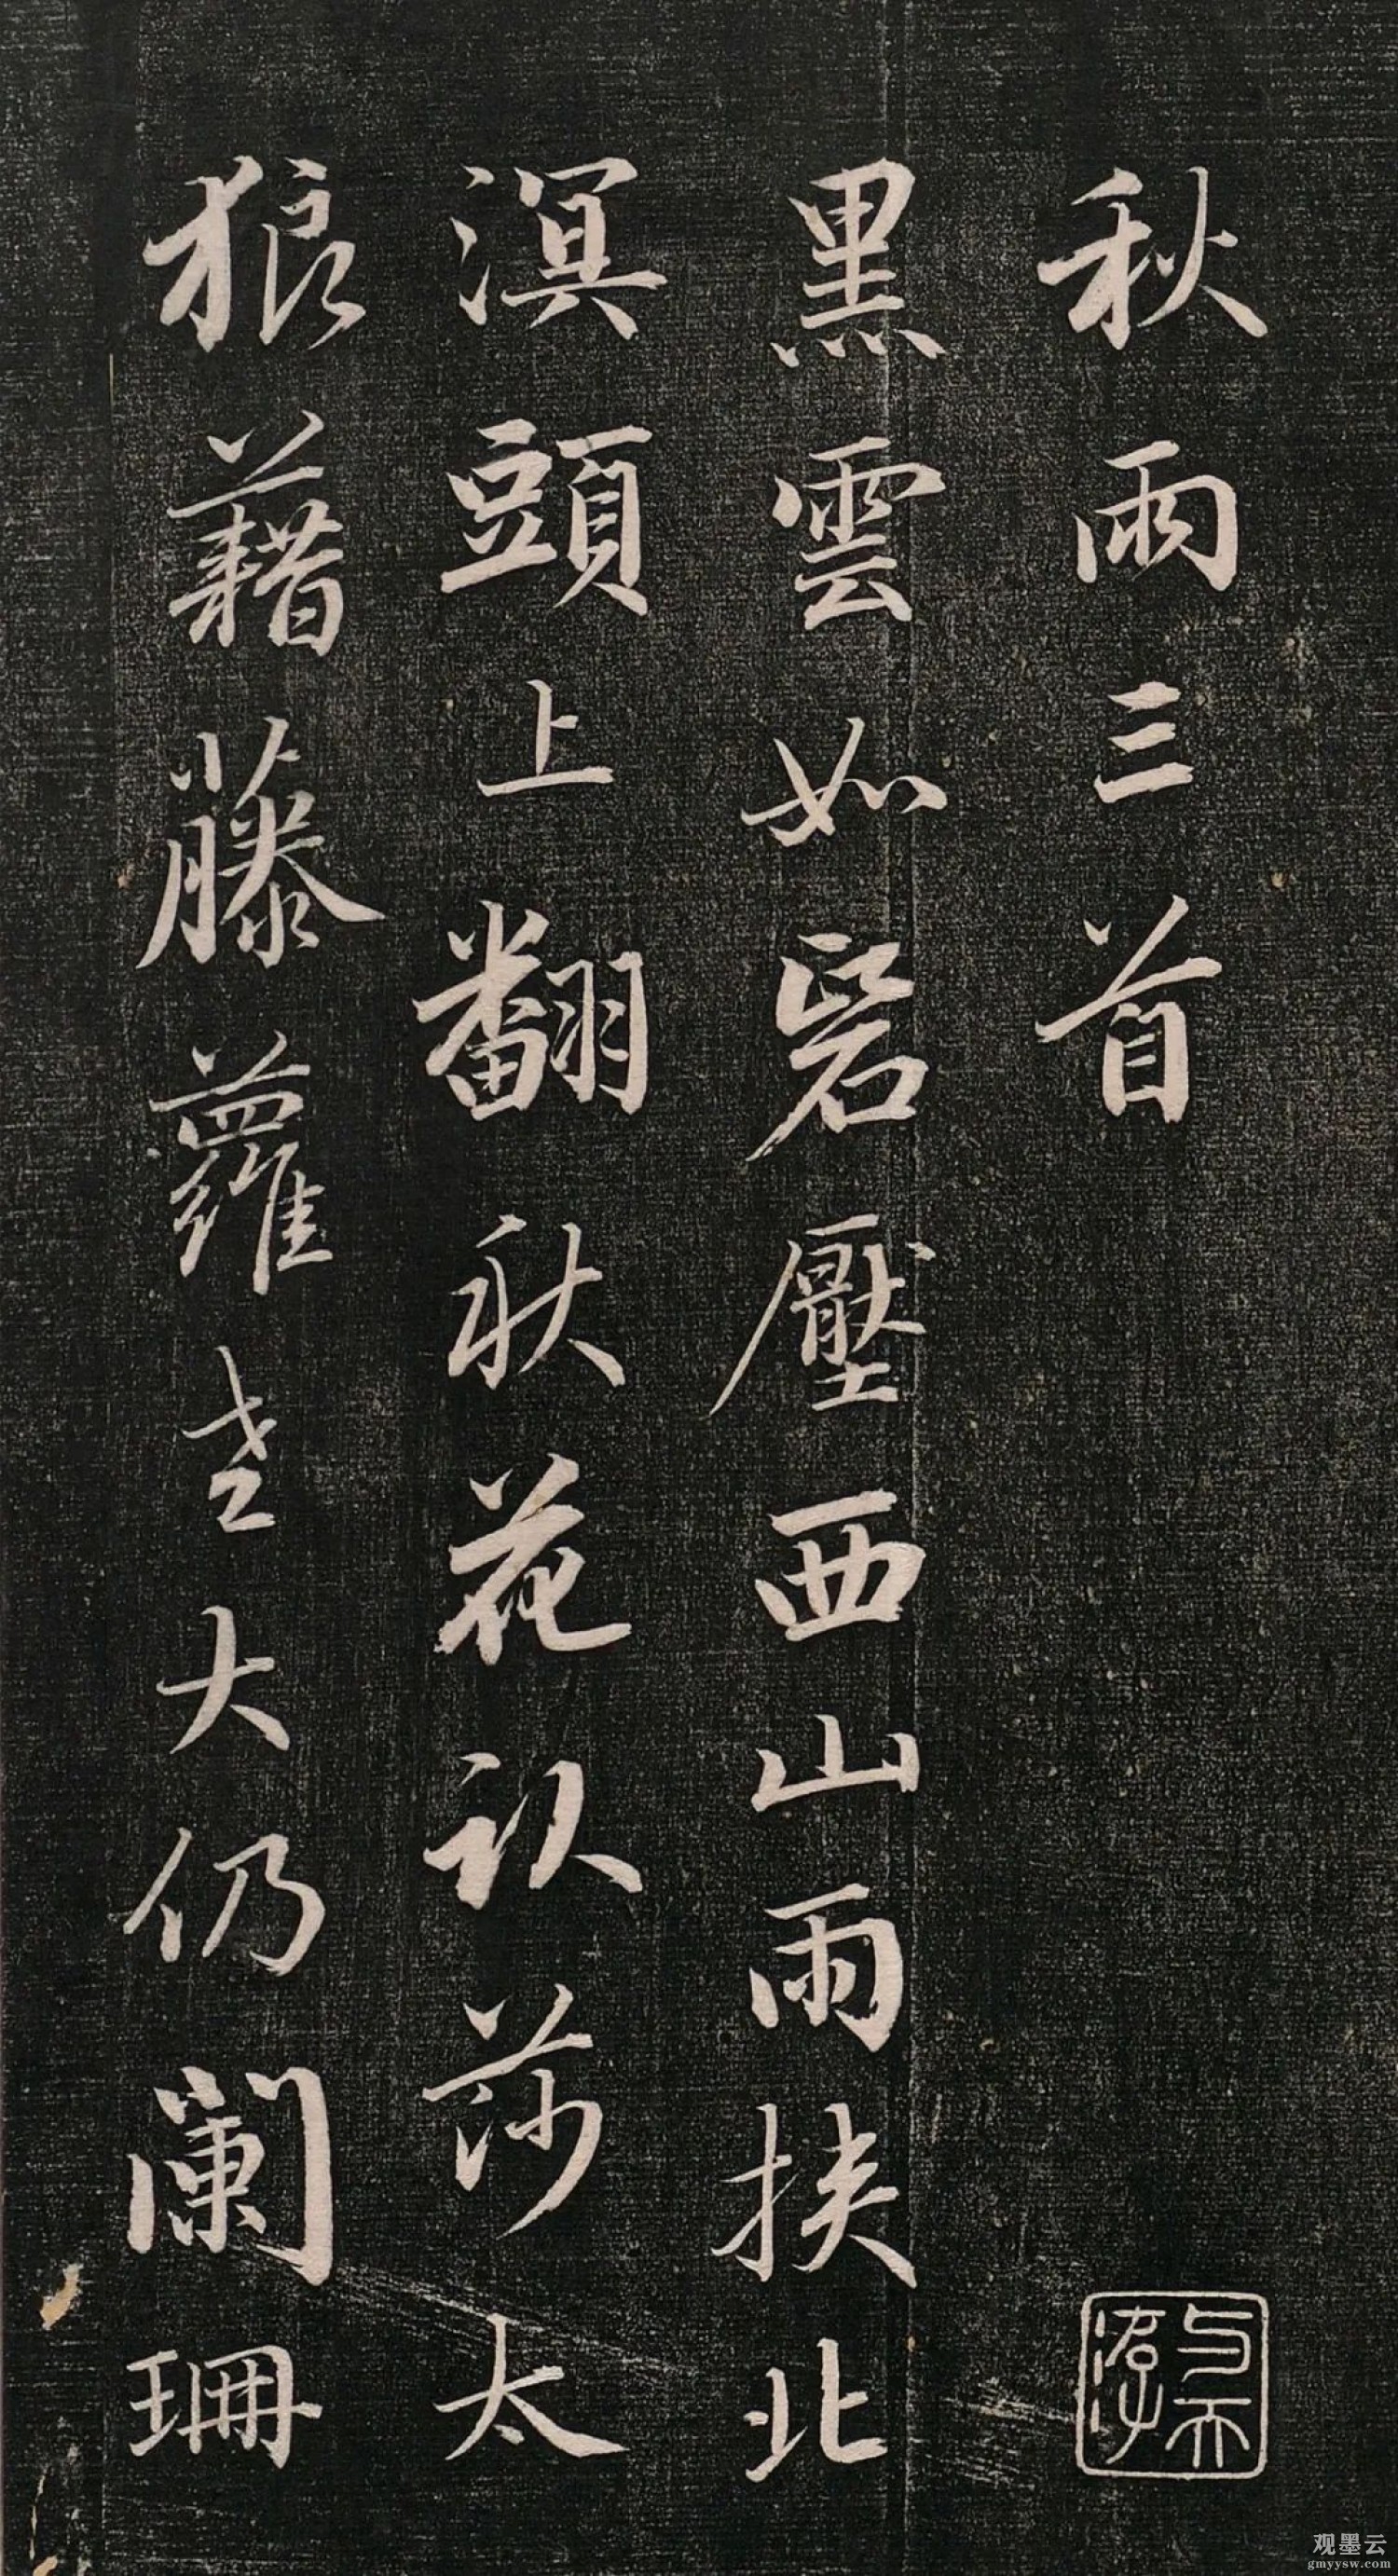 秋雨三首
与天游
黑雲如砦壓西山雨挾北
溟頭上翻秋花莎太
狼藉藤蘿老大仍闌珊
观墨云
gmyysw.com